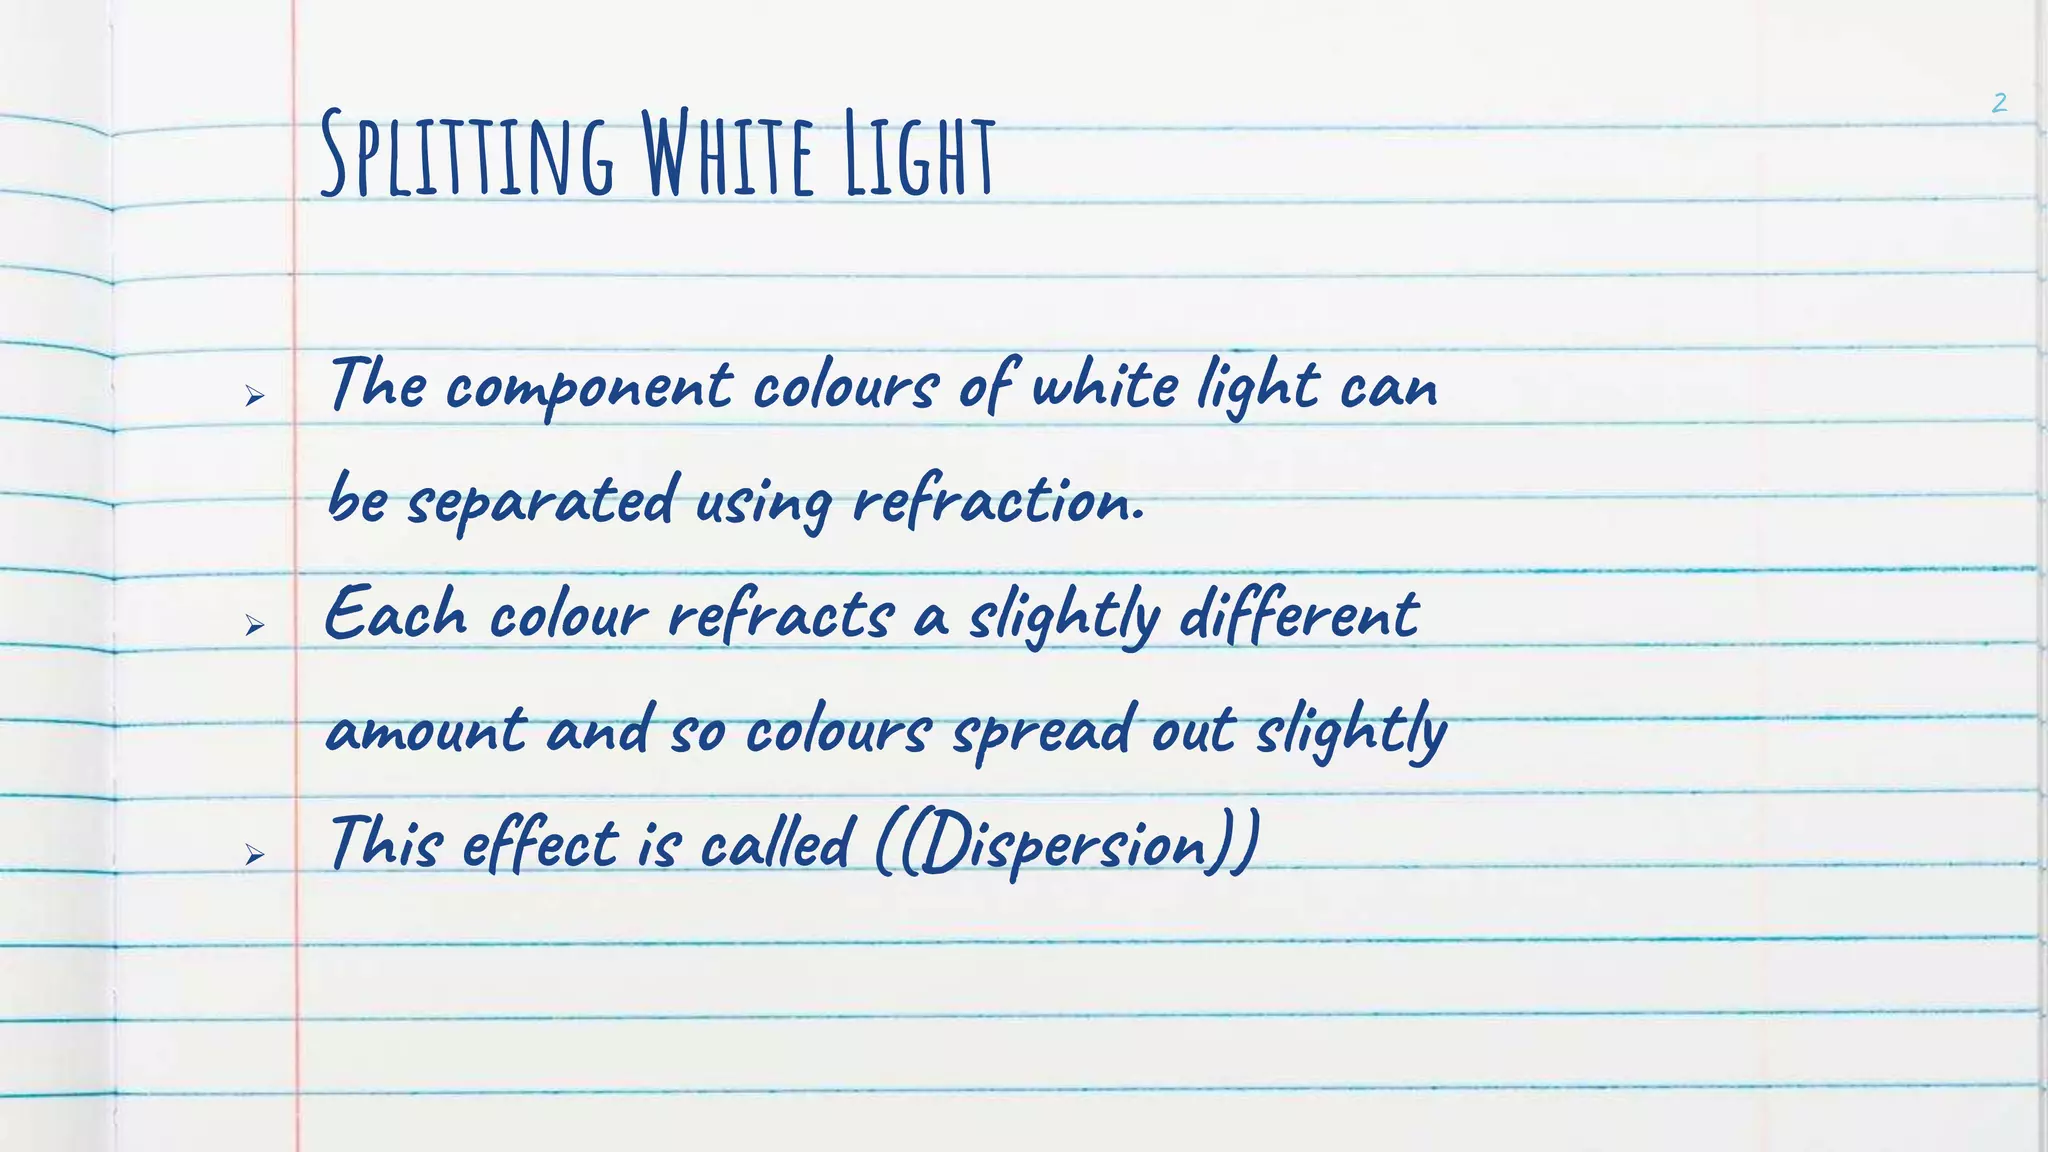 Splitting White Light
2
➢ The component colours of white light can
be separated using refraction.
➢ Each colour refracts a slightly different
amount and so colours spread out slightly
➢ This effect is called ((Dispersion))